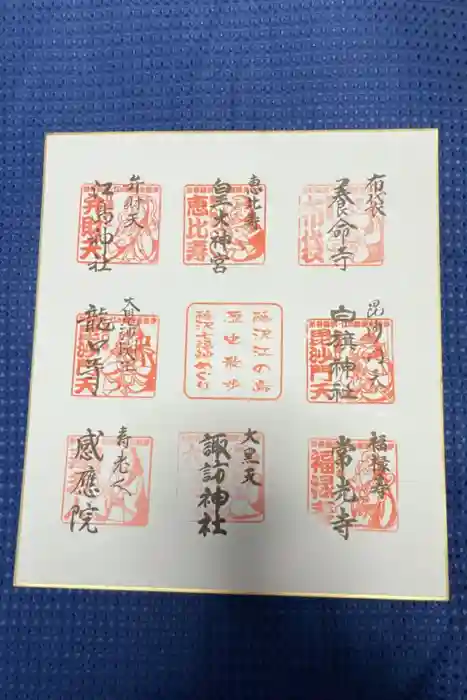 布袋
養命寺
恵比寿
皇大神宮
恵比寿
弁財天
江島神社
弁財天
毘沙門天
白旗神社
毘沙門天
藤沢江の島
歴史散歩
藤沢七福神めぐり
大毘沙門天
龍口寺
福禄寿
常光寺
福禄寿
大黒天
諏訪神社
寿老人
感應院